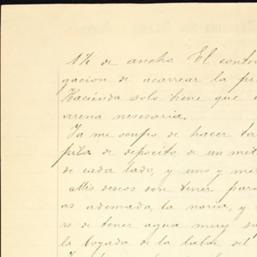 1½ de ancho El contra
gacion de acarrear la pi
Hacienda solo tiene que
arena necesaria.
Ya me ocupo de hacer la
pila de deposito de un met
de cada lado, y uno y me
Mis deseos son tener para
as ademada, la noria, y
ro de tener agua muy
la